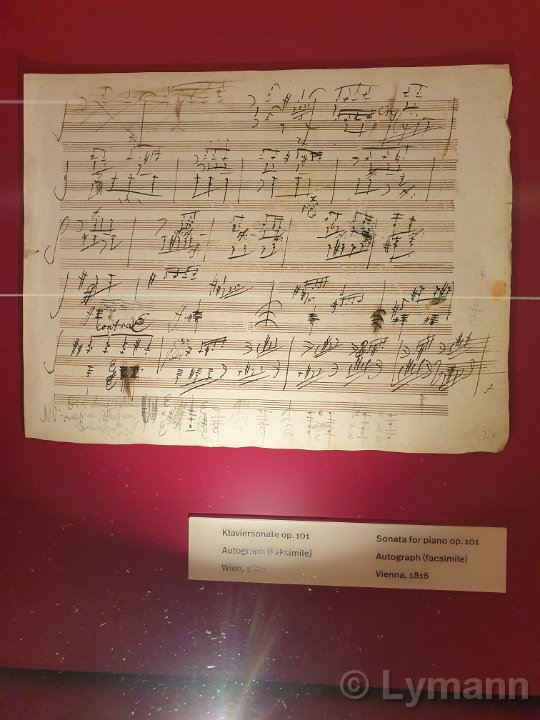 Contra E
23
Klaviersonate op. 101
Autograph (Faksimile)
Wien,
Sonata for piano op. 101
Autograph (facsimile)
Vienna, 1816
© Lymann